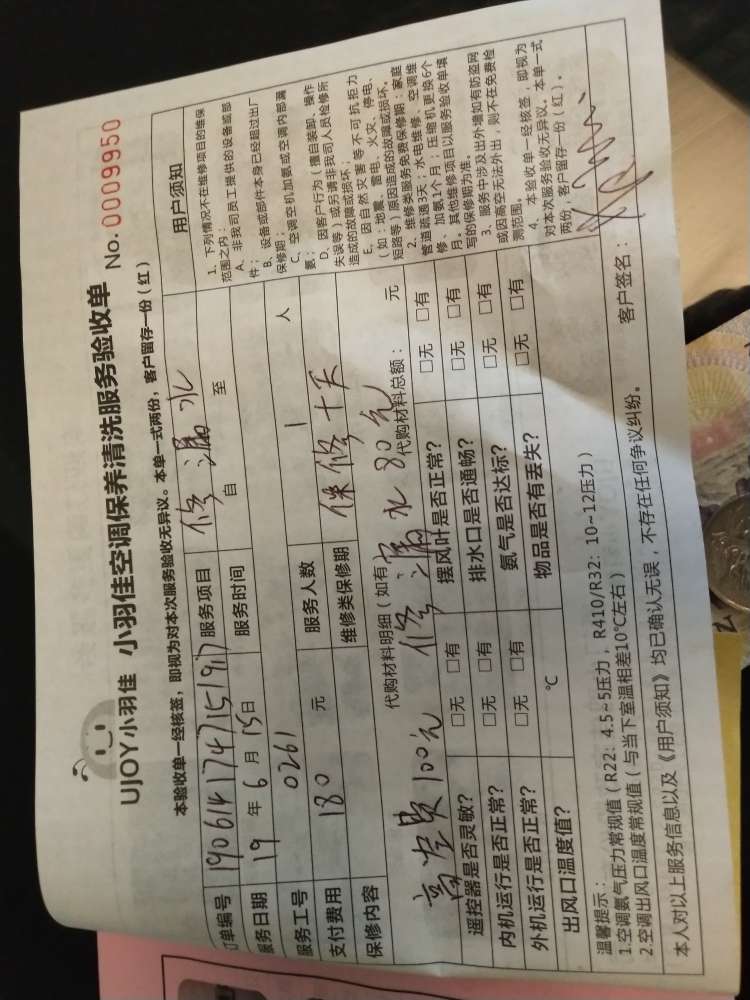 UJOY小羽佳 小羽佳空调保养清洗服务验收单 No. 0009950
本验收单一经核签，即视为对本次服务验收无异议。本单一式两份，客户留存一份（红）
订单编号 190614174715197 服务项目 修漏水
服务日期 19 年 6 月 15 日 服务时间 自 至
服务工号 0261
支付费用 180 元 服务人数 1 人
保修内容 维修类保修期 保修十天
代购材料明细（如有） 代购材料总额： 元
高空费100元 修漏水80元
遥控器是否灵敏？ □无 □有 摆风叶是否正常？ □无 □有
内机运行是否正常？ □无 □有 排水口是否通畅？ □无 □有
外机运行是否正常？ □无 □有 氨气是否达标？ □无 □有
出风口温度值？ ℃ 物品是否有丢失？ □无 □有
用户须知
1、下列情况不在维修项目的维保
范围之内：
A、非我司员工提供的设备或部
件；
B、设备或部件本身已经超过出厂
保修期；
C、空调空机加氨或空调内部漏
氨；
D、因客户行为（擅自装卸、操作
失误等）或另请非我司人员检修所
造成的故障或损坏；
E、因自然灾害等不可抗拒力
（如：地震、雷电、火灾、停电、
短路等）原因造成的故障或损坏。
2、维修类服务免费保修期：家庭
管道疏通3天；水电维修、空调维
修、加氨1个月；压缩机更换6个
月。其他维修项目以服务验收单填
写的保修期为准。
3、服务中涉及出外墙如有防盗网
或因高空无法外出，则不在免费检
测范围。
4、本验收单一经核签，即视为
对本次服务验收无异议。本单一式
两份，客户留存一份（红）。
温馨提示：
1.空调氨气压力常规值（R22：4.5~5压力，R410/R32：10~12压力）
2.空调出风口温度常规值（与当下室温相差10℃左右）
本人对以上服务信息以及《用户须知》均已确认无误，不存在任何争议纠纷。 客户签名：